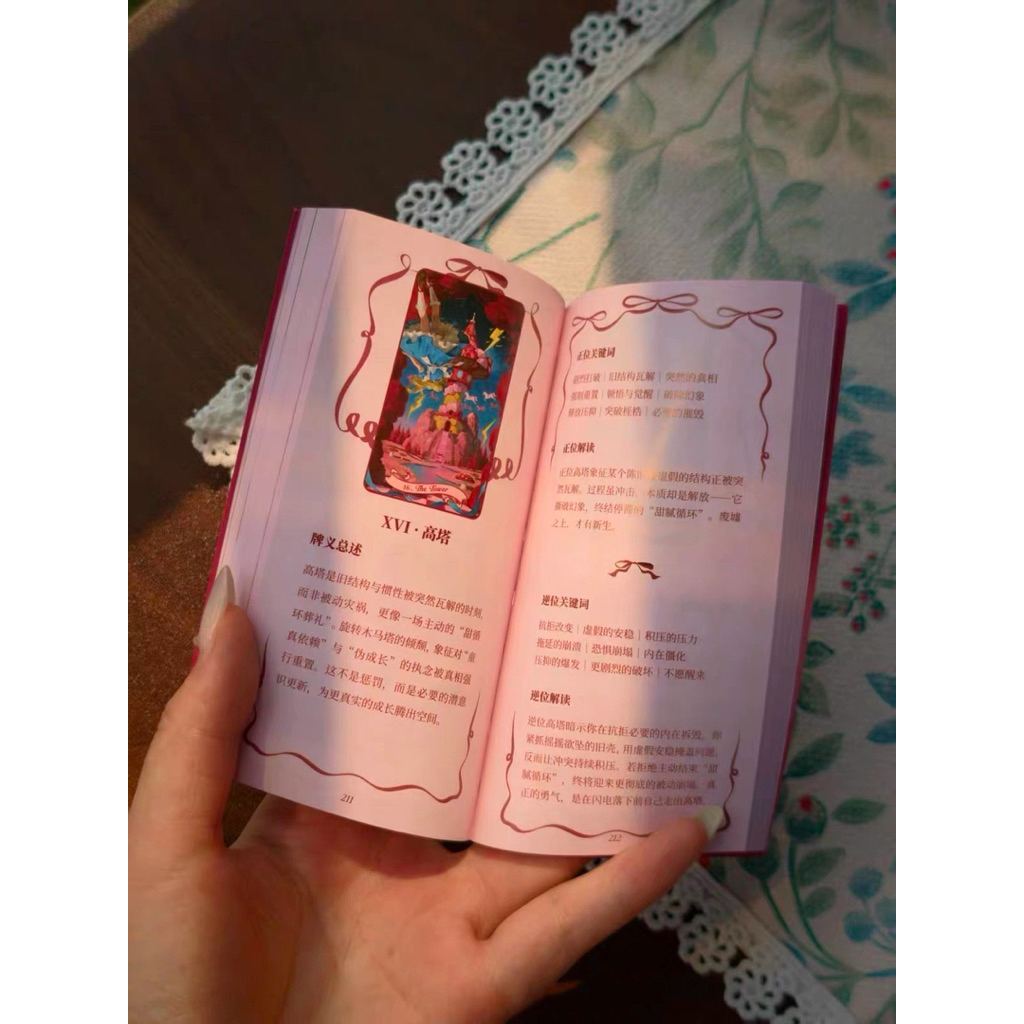 16. The Tower
XVI · 高塔
牌义总述
高塔是旧结构与惯性被突然瓦解的时刻,
而非被动灾祸，更像一场主动的“甜循
环葬礼”。旋转木马塔的倾颓, 象征对“童
真依赖”与“伪成长”的执念被真相强
行重置。这不是惩罚，而是必要的潜意
识更新，为更真实的成长腾出空间。
211
正位关键词
打破｜旧结构瓦解｜突然的真相
强制重置｜顿悟与觉醒｜破除幻象
释放压抑｜突破桎梏｜必要的摧毁
正位解读
正位高塔象征某个陈旧虚假的结构正被突
然瓦解。过程虽冲击，本质却是解放——它
撕破幻象，终结停滞的“甜腻循环”。废墟
之上，才有新生。
逆位关键词
抗拒改变｜虚假的安稳｜积压的压力
拖延的崩溃｜恐惧崩塌｜内在僵化
压抑的爆发｜更剧烈的破坏｜不愿醒来
逆位解读
逆位高塔暗示你在抗拒必要的内在拆毁。你
紧抓摇摇欲坠的旧壳，用虚假安稳掩盖问题,
反而让冲突持续积压。若拒绝主动结束“甜
腻循环”，终将迎来更彻底的被动崩塌。真
正的勇气，是在闪电落下前自己走出高塔。
212